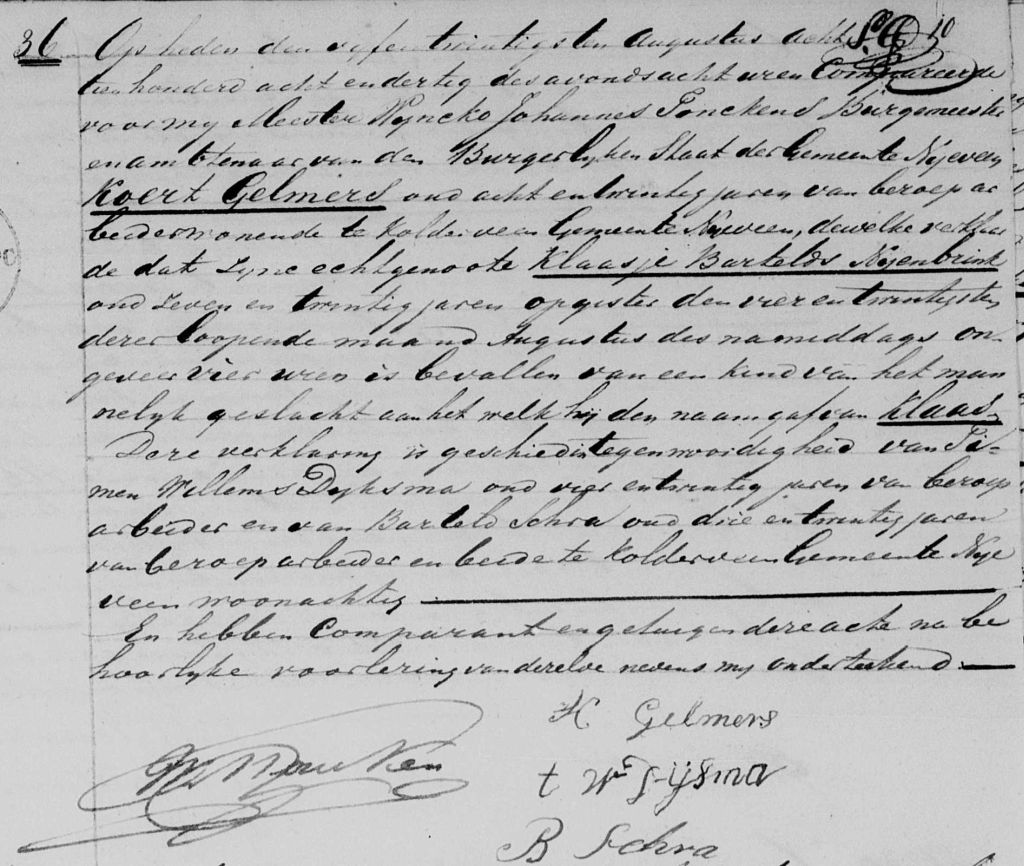 36 Op heden den vyfentwintigsten Augustus acht
tien honderd acht en dertig des avonds acht uren Compareerde
voor my Meester Wyncko Johannes Tonckens Burgemeester
en ambtenaar van den Burgerlyken Staat der Gemeente Nyeveen
Koert Gelmers oud acht en twintig jaren van beroep ar
beider wonende te Kolderveen Gemeente Nyeveen, dewelke verklaar
de dat Zyne echtgenoote Klaasje Bartelds Nyenbrink
oud Zeven en twintig jaren op gister den vier en twintigsten
dezer loopende maand Augustus des namiddags on-
geveer vier uren is bevallen van een kind van het man
nelyk geslacht aan het welk hij den naam gaf van Klaas,
Deze verklaring is geschied in tegenwoordigheid van Ti-
men Willems Dyksma oud vier en twintig jaren van beroep
arbeider en van Barteld Schra oud drie en twintig jaren
van beroep arbeider en beide te Kolderveen Gemeente Nye
veen woonachtig
En hebben Comparant en getuigen deze acte na be
hoorlyke voorlezing van dezelve nevens my onderteekend.
K Gelmers
t Wms
B Schra